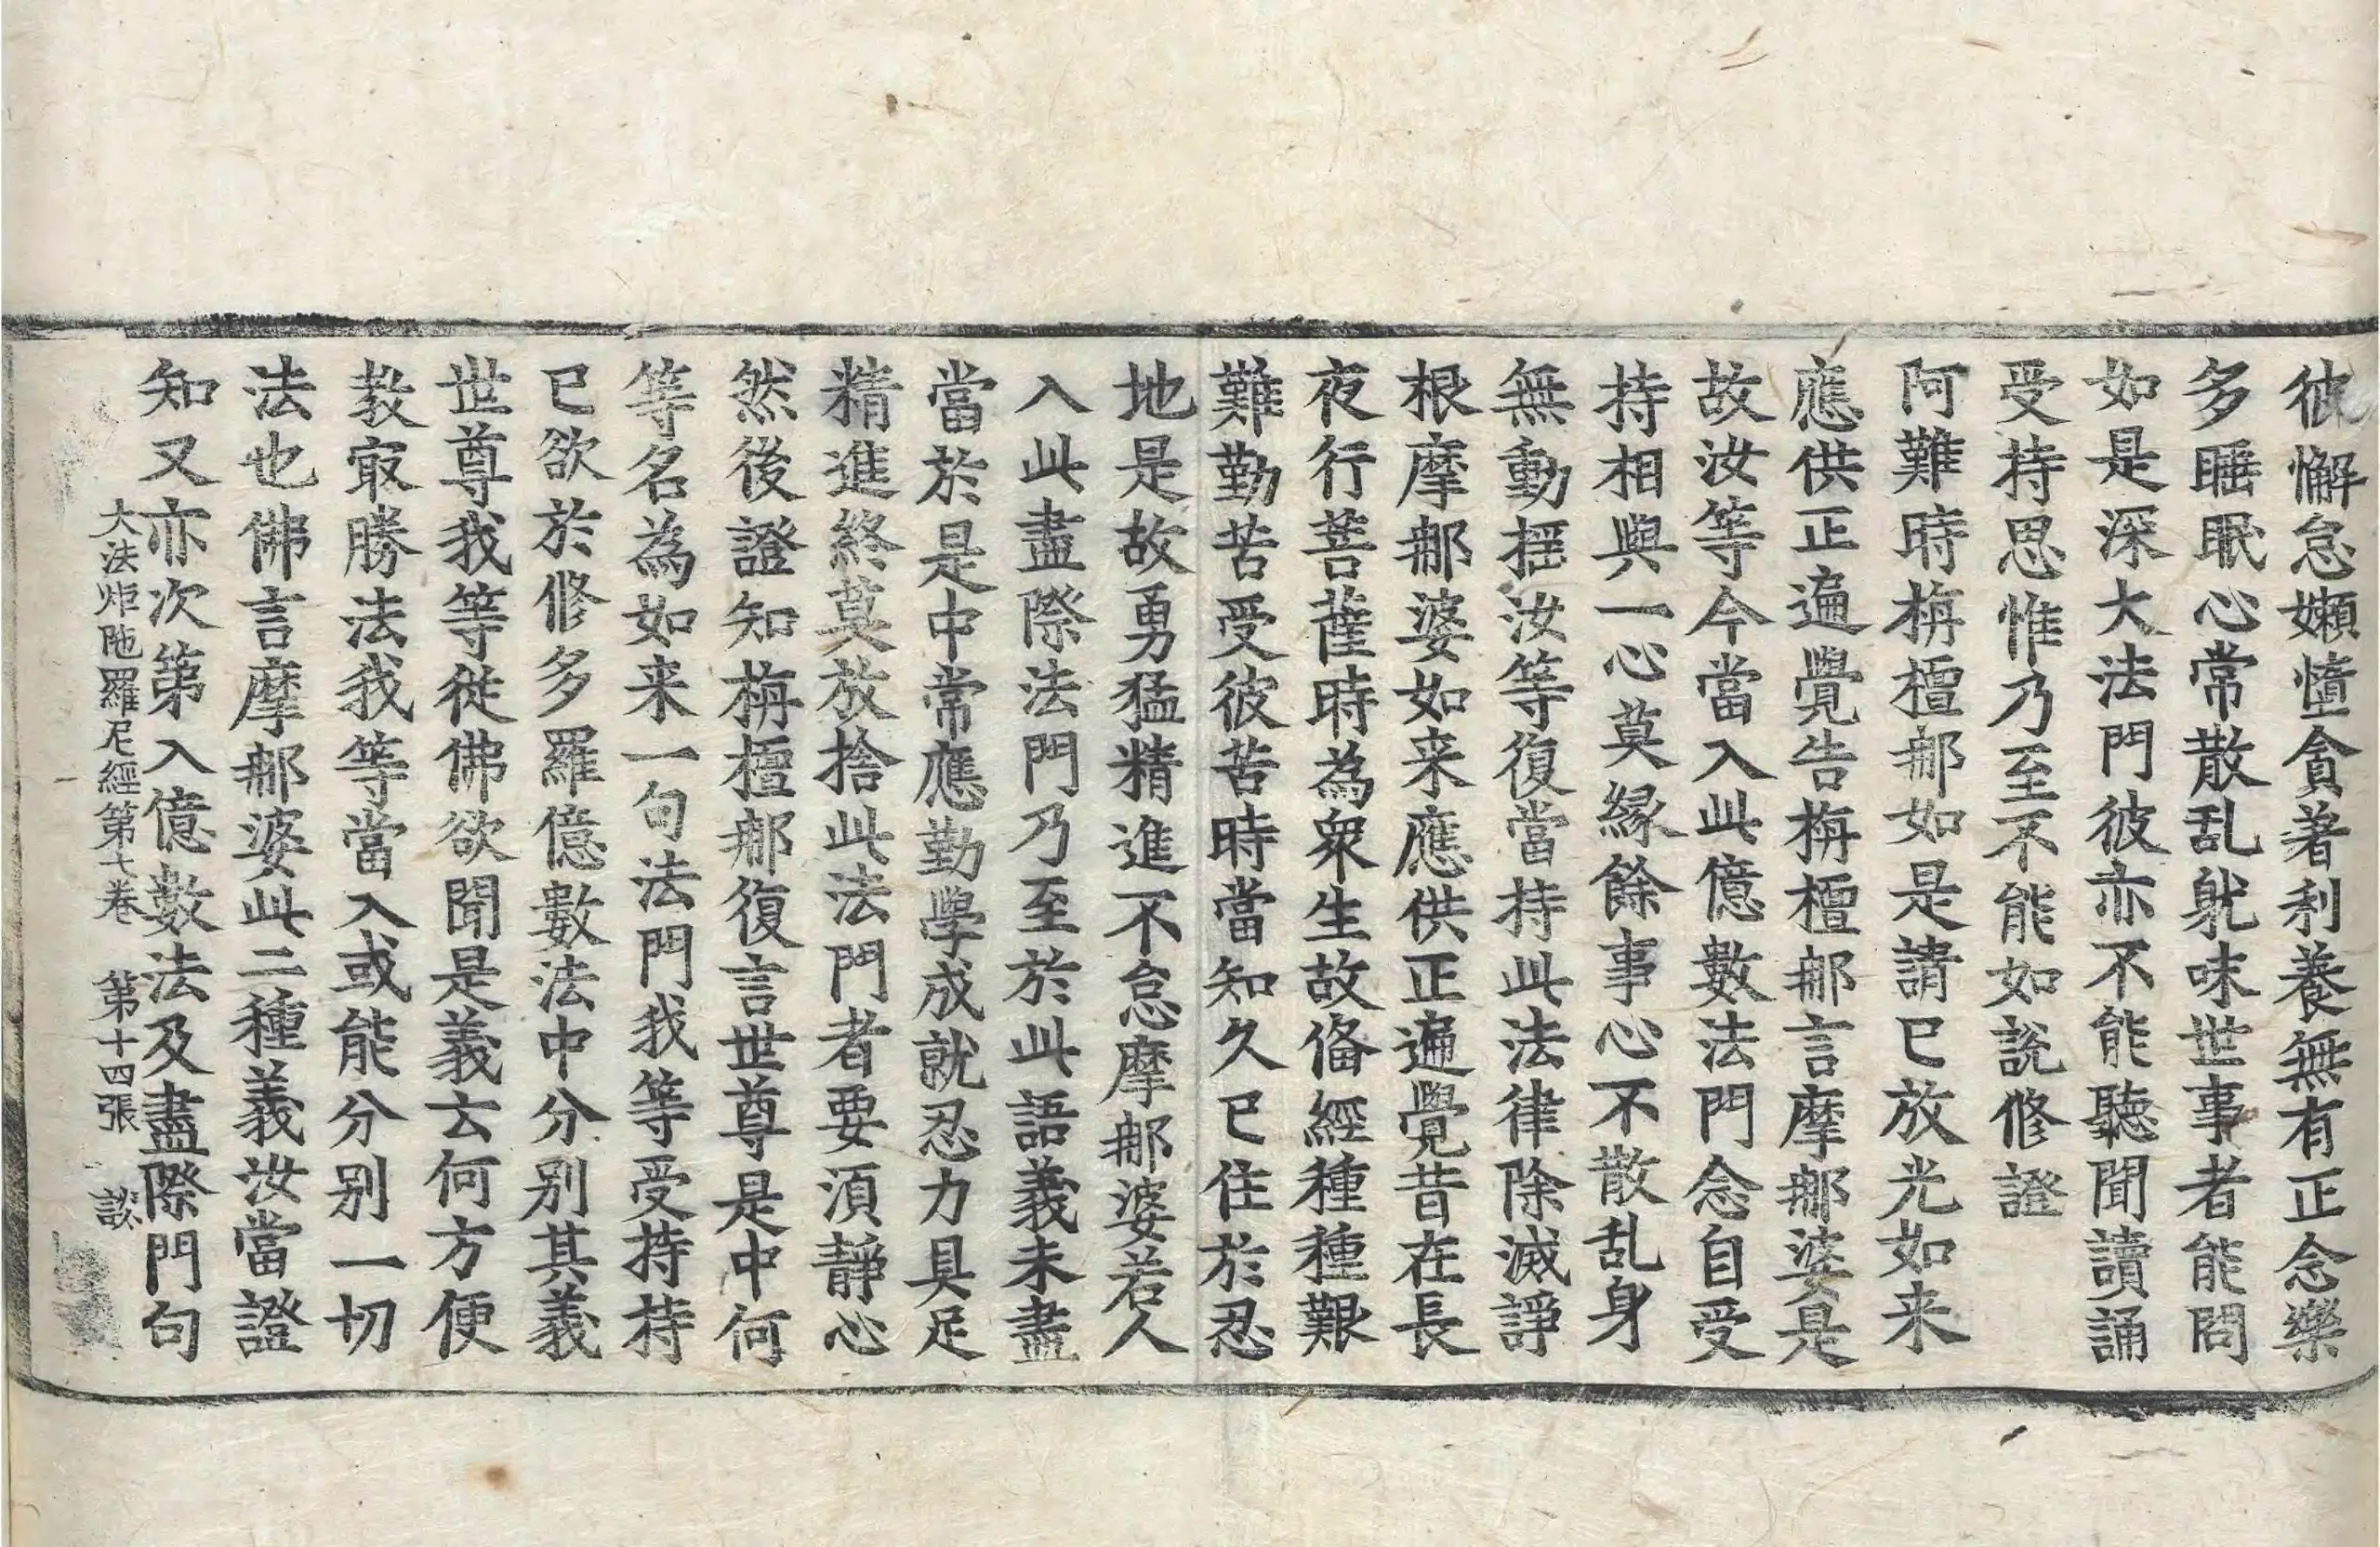 彼懈怠嬾憧貪著利養無有正念樂
多睡眠心常散乱躭味世事者能問
如是深大法門彼亦不能聽聞讀誦
受持思惟乃至不能如說修證
阿難時栴檀𨚗如是請已放光如来
應供正遍覺告栴檀𨚗言摩𨚗婆是
故汝等今當入此億數法門念自受
持相與一心莫緣餘事心不散乱身
無動揺汝等復當持此法律除滅諍
根摩𨚗婆如来應供正遍覺昔在長
夜行菩薩時為衆生故俻經種種艱
難勤苦受彼苦時當知久已住於忍
地是故勇猛精進不怠摩𨚗婆若人
入此盡際法門乃至於此語義未盡
當於是中常應勤學成就忍力具足
精進終莫放捨此法門者要湏靜心
然後證知栴檀𨚗復言世尊是中何
等名為如来一句法門我等受持持
已欲於修多羅億數法中分別其義
世尊我等從佛欲聞是義云何方便
教㝡勝法我等當入或能分別一切
法也佛言摩𨚗婆此二種義汝當證
知又亦次第入億數法及盡際門句
大法炬陁羅尼經第七卷 第十四張 談